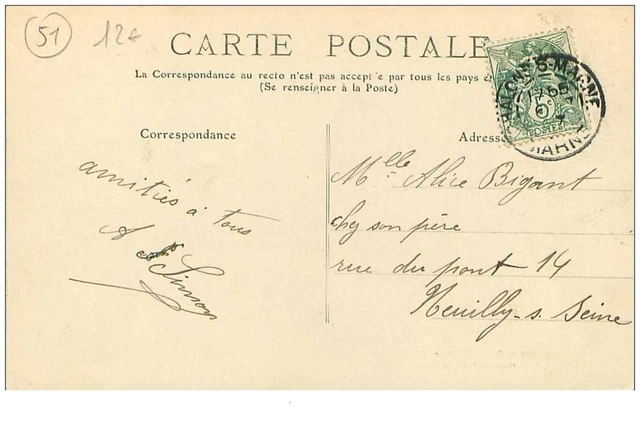 51
12€
CARTE POSTALE
La Correspondance au recto n'est pas accept'e par tous les pays
(Se renseigner à la Poste)
Correspondance
Adresse
5c
POSTES
CHALONS-S-MARNE
MARNE
amitiés à tous
A St Simon
Mlle Alice Bigant
chez son père
rue du pont 14
Neuilly-s. Seine